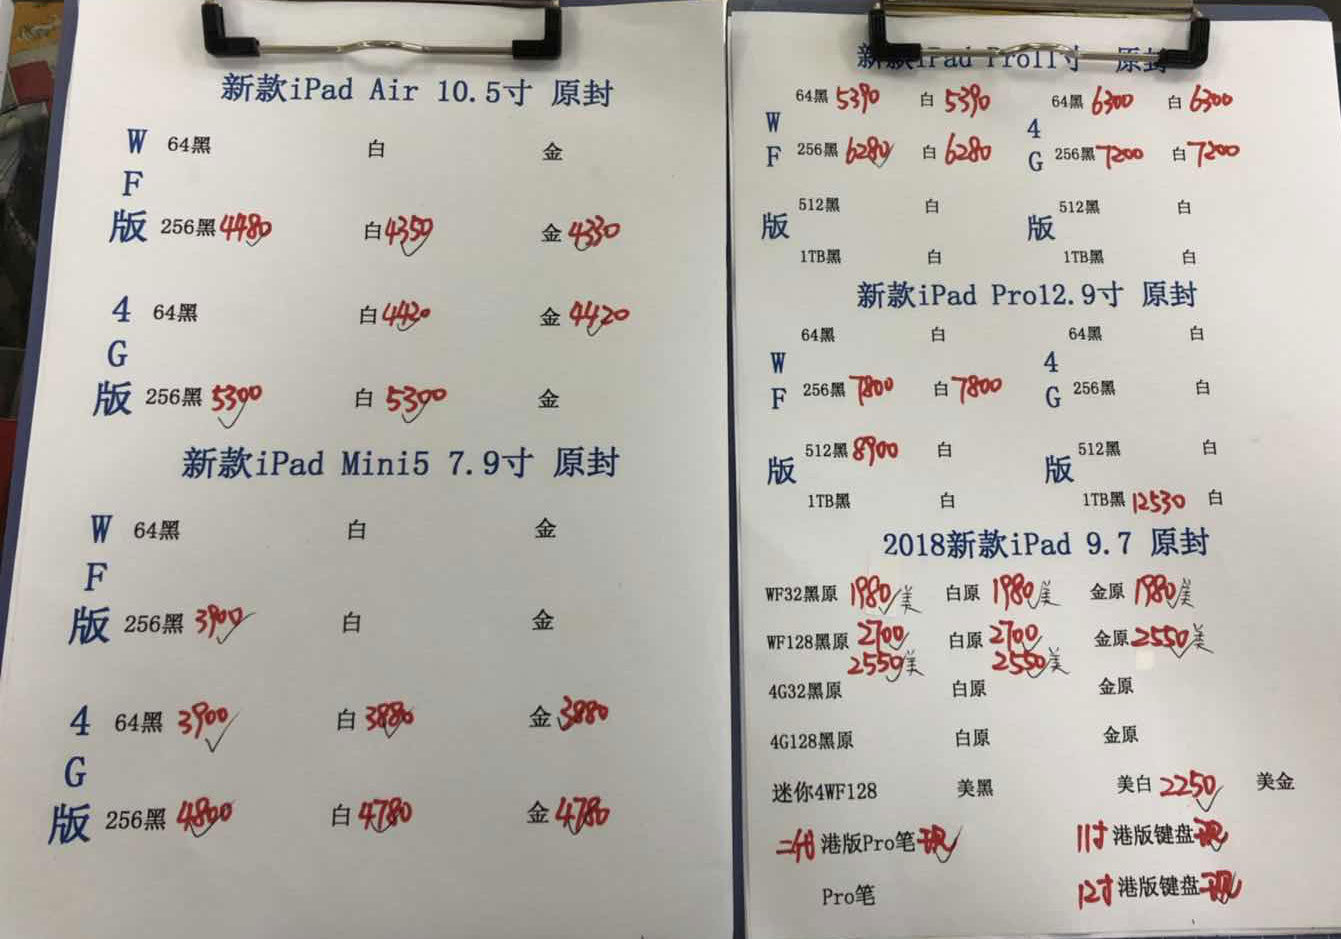 新款iPad Air 10.5寸 原封
WF版
64黑 白 金
256黑 4480 白 4350 金 4330
4G版
64黑 白 4420 金 4420
256黑 5300 白 5300 金
新款iPad Mini5 7.9寸 原封
WF版
64黑 白 金
256黑 3900 白 金
4G版
64黑 3900 白 3880 金 3880
256黑 4800 白 4780 金 4780
新款iPad Pro11寸 原封
WF版
64黑 5390 白 5390
256黑 6280 白 6280
512黑 白
1TB黑 白
4G版
64黑 6300 白 6300
256黑 7200 白 7200
512黑 白
1TB黑 白
新款iPad Pro12.9寸 原封
WF版
64黑 白
256黑 7800 白 7800
512黑 8900 白
1TB黑 白
4G版
64黑 白
256黑 白
512黑 白
1TB黑 12530 白
2018新款iPad 9.7 原封
WF32黑原 1980美 白原 1980美 金原 1980美
WF128黑原 2700 白原 2700 金原 2550美
2550美 2550美
4G32黑原 白原 金原
4G128黑原 白原 金原
迷你4WF128 美黑 美白 2250 美金
二代 港版Pro笔 现 11寸 港版键盘 现
Pro笔 12寸 港版键盘 现